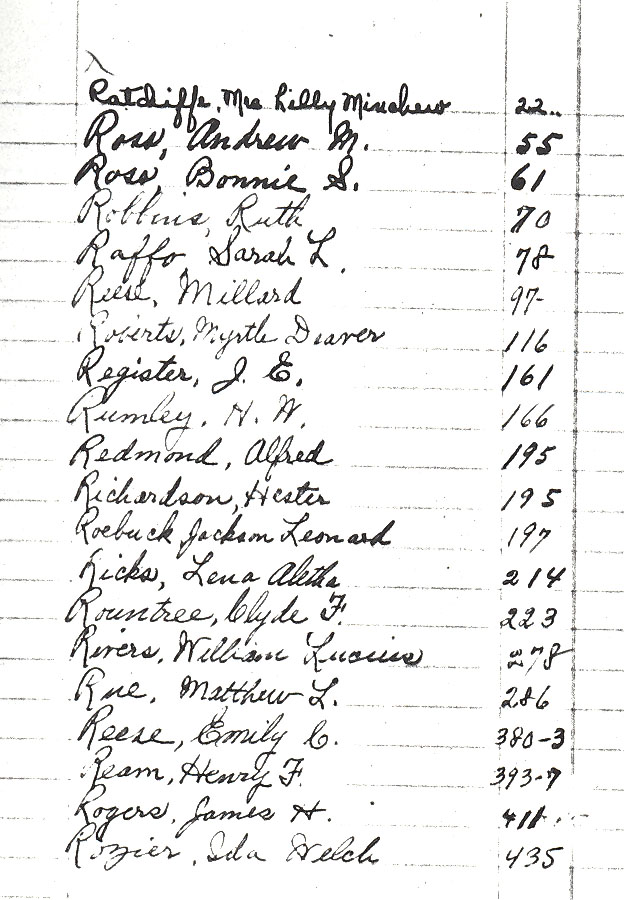 Ratcliffe, Mrs Lilly Minchew 22
Ross, Andrew M. 55
Ross, Bonnie S. 61
Robbins, Ruth 70
Raffo, Sarah L. 78
Reese, Millard 97
Roberts, Myrtle Deaver 116
Register, J. E. 161
Rumley, H. W. 166
Redmond, Alfred 195
Richardson, Hester 195
Roebuck Jackson Leonard 197
Ricks, Lena Aletha 214
Rountree, Clyde F. 223
Rivers, William Lucius 278
Rue, Matthew L. 286
Reese, Emily C. 380-3
Ream, Henry F. 393-7
Rogers, James H. 411
Rozier, Ida Welch 435